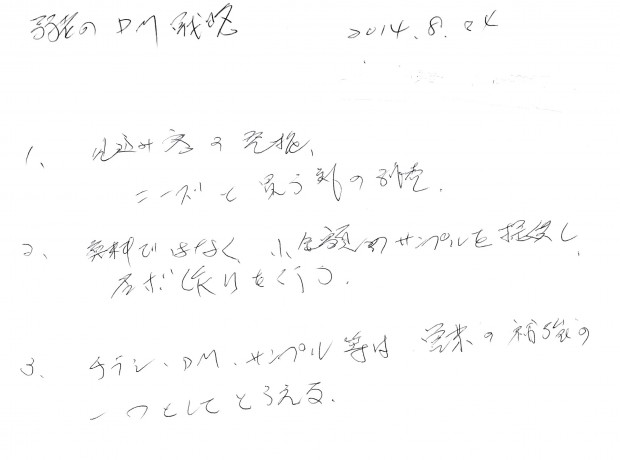 弱者のDM戦略 2014.8.24
1、見込み客の発掘、
ニーズと買う気の調査.
2、無料ではなく、小金額のサンプルを提供し、
名ボ作りを行う.
3、チラシ、DM、サンプル等は営業の補強の
一つとしてとらえる.